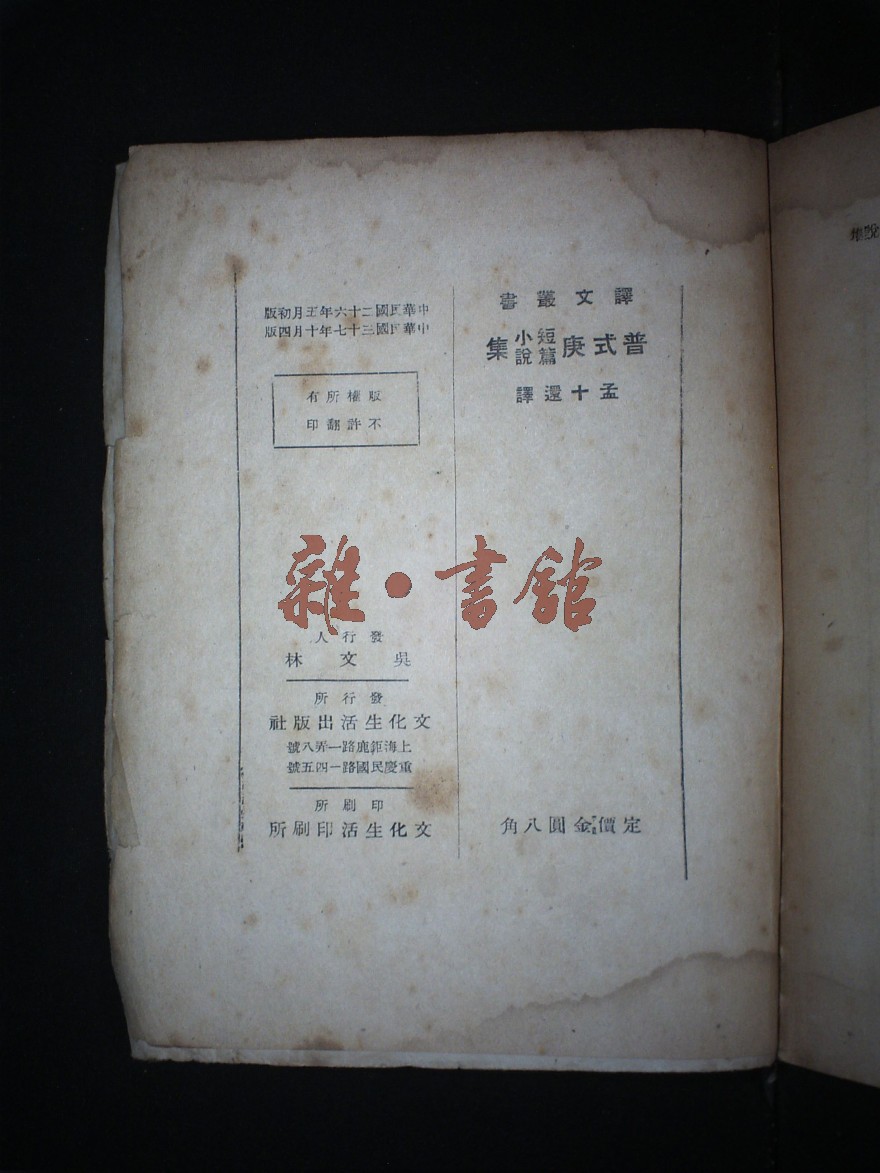 譯文叢書
普式庚短篇小說集
孟十還譯
定價金圓八角
中華民國二十六年五月初版
中華民國三十七年十月四版
版權所有
不許翻印
發行人
吳文林
發行所
文化生活出版社
上海鉅鹿路一弄八號
重慶民國路一四五號
印刷所
文化生活印刷所
雜·書館
說集